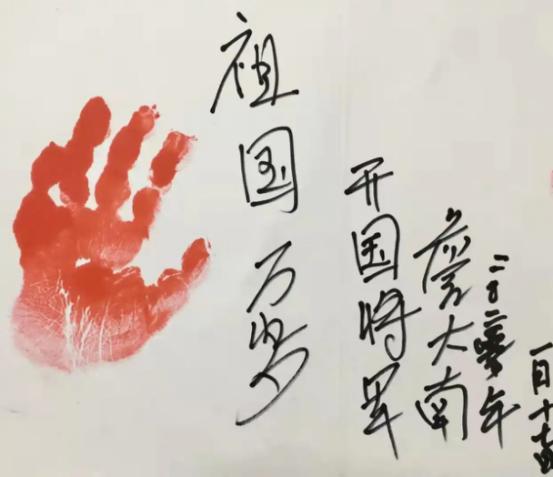 祖国万岁
开国将军
詹大南
二0二零年
一月十